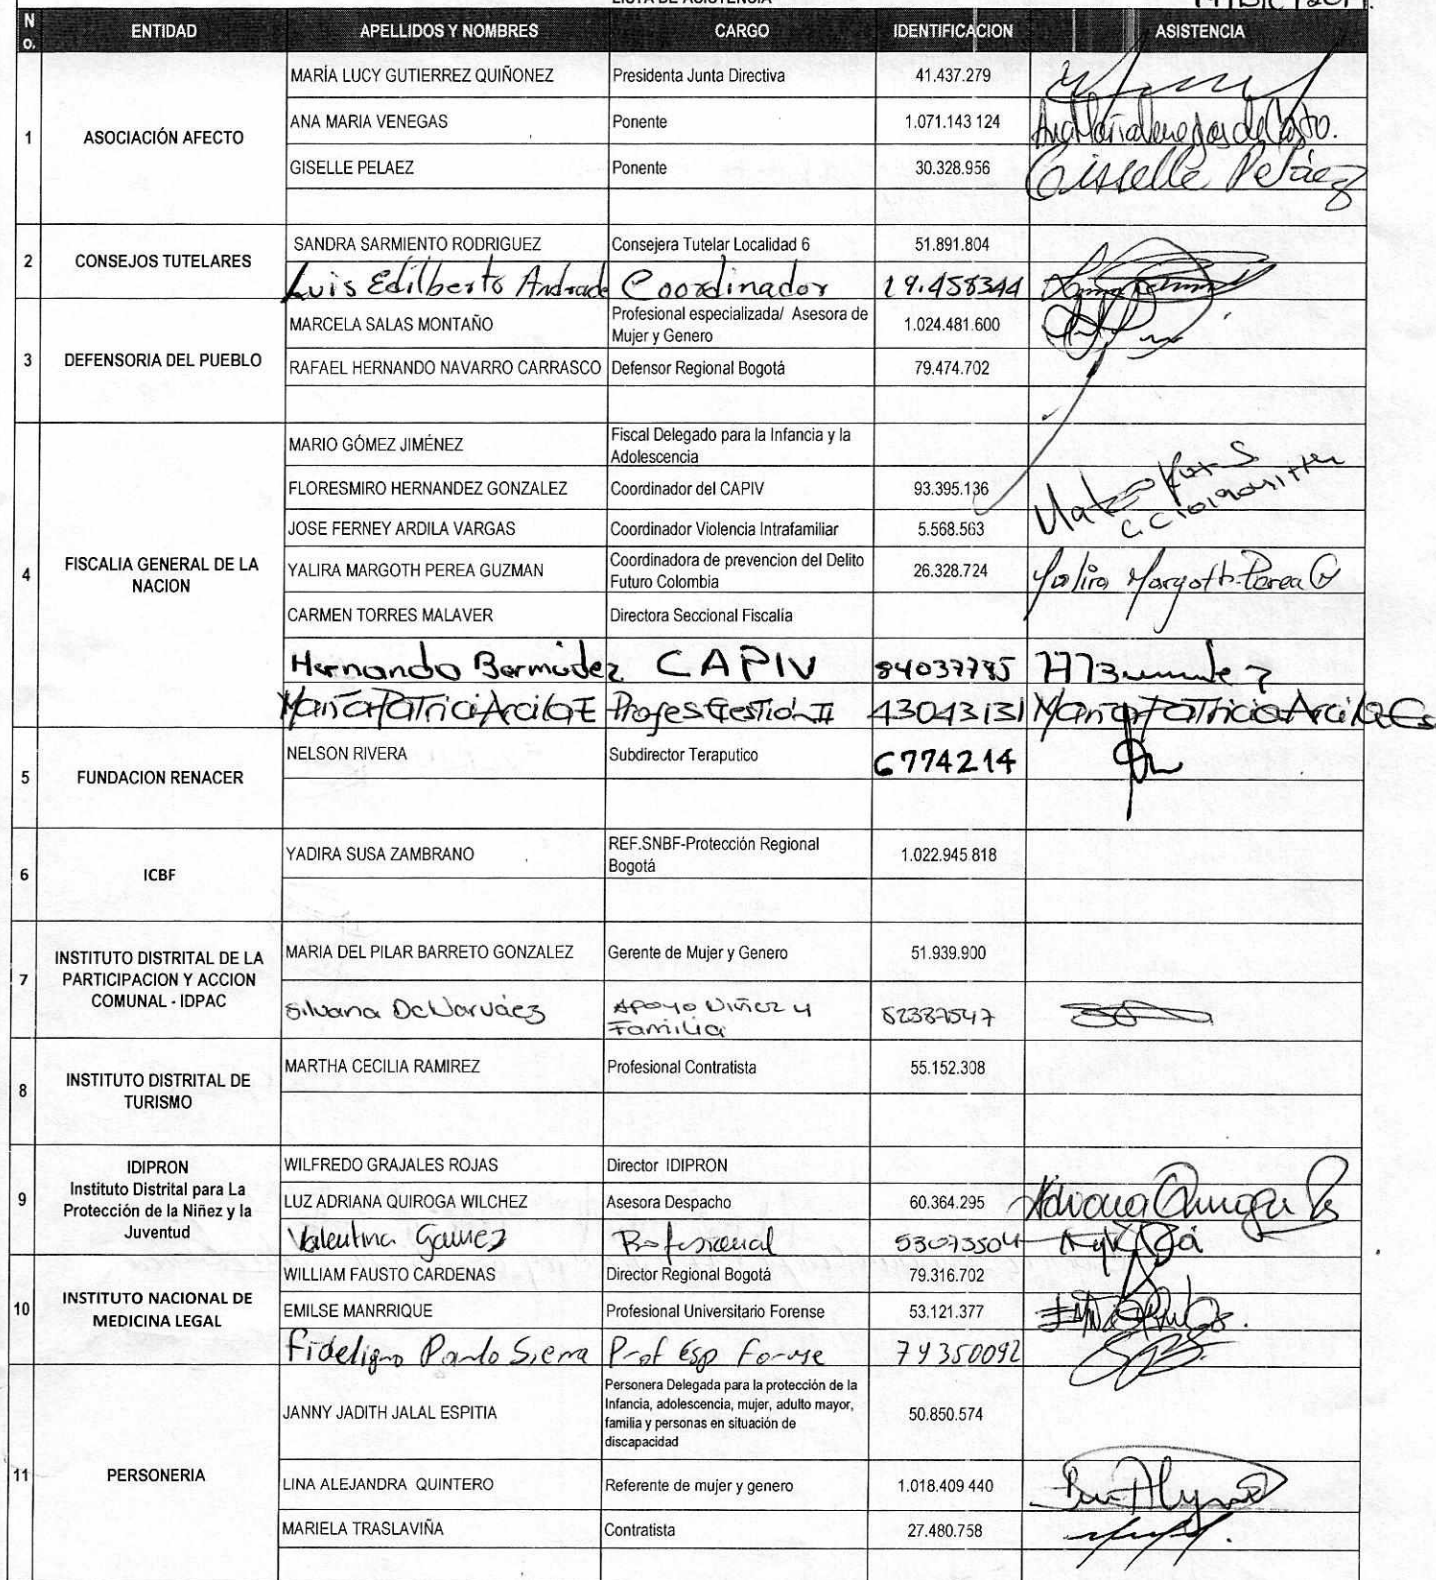 LISTA DE ASISTENCIA
No. ENTIDAD APELLIDOS Y NOMBRES CARGO IDENTIFICACION ASISTENCIA
1 ASOCIACIÓN AFECTO
MARÍA LUCY GUTIERREZ QUIÑONEZ Presidenta Junta Directiva 41.437.279
ANA MARIA VENEGAS Ponente 1.071.143 124 Ana María Venegas de Castro.
GISELLE PELAEZ Ponente 30.328.956 Gisselle Peláez
2 CONSEJOS TUTELARES
SANDRA SARMIENTO RODRIGUEZ Consejera Tutelar Localidad 6 51.891.804
Luis Edilberto Andrade Coordinador 19.458344
3 DEFENSORIA DEL PUEBLO
MARCELA SALAS MONTAÑO Profesional especializada/ Asesora de
Mujer y Genero 1.024.481.600
RAFAEL HERNANDO NAVARRO CARRASCO Defensor Regional Bogotá 79.474.702
4 FISCALIA GENERAL DE LA
NACION
MARIO GÓMEZ JIMÉNEZ Fiscal Delegado para la Infancia y la
Adolescencia
FLORESMIRO HERNANDEZ GONZALEZ Coordinador del CAPIV 93.395.136
JOSE FERNEY ARDILA VARGAS Coordinador Violencia Intrafamiliar 5.568.563
YALIRA MARGOTH PEREA GUZMAN Coordinadora de prevencion del Delito
Futuro Colombia 26.328.724 Yalira Margoth Perea G
CARMEN TORRES MALAVER Directora Seccional Fiscalía
Hernando Bermúdez CAPIV 84037785
María Patricia Arcila E Profes Gestión II 43043131 María Patricia Arcila Es
5 FUNDACION RENACER
NELSON RIVERA Subdirector Teraputico 6774214
6 ICBF
YADIRA SUSA ZAMBRANO REF.SNBF-Protección Regional
Bogotá 1.022.945.818
7 INSTITUTO DISTRITAL DE LA
PARTICIPACION Y ACCION
COMUNAL - IDPAC
MARIA DEL PILAR BARRETO GONZALEZ Gerente de Mujer y Genero 51.939.900
Silvana De Narváez Apoyo Niñez y
Familia 52387547
8 INSTITUTO DISTRITAL DE
TURISMO
MARTHA CECILIA RAMIREZ Profesional Contratista 55.152.308
9 IDIPRON
Instituto Distrital para La
Protección de la Niñez y la
Juventud
WILFREDO GRAJALES ROJAS Director IDIPRON
LUZ ADRIANA QUIROGA WILCHEZ Asesora Despacho 60.364.295 Adriana Quiroga
Valentina Gamez Profesional 53073504
10 INSTITUTO NACIONAL DE
MEDICINA LEGAL
WILLIAM FAUSTO CARDENAS Director Regional Bogotá 79.316.702
EMILSE MANRRIQUE Profesional Universitario Forense 53.121.377
Fideligno Pardo Sierra Prof Esp Forense 79350092
11 PERSONERIA
JANNY JADITH JALAL ESPITIA Personera Delegada para la protección de la
Infancia, adolescencia, mujer, adulto mayor,
familia y personas en situación de
discapacidad 50.850.574
LINA ALEJANDRA QUINTERO Referente de mujer y genero 1.018.409 440
MARIELA TRASLAVIÑA Contratista 27.480.758